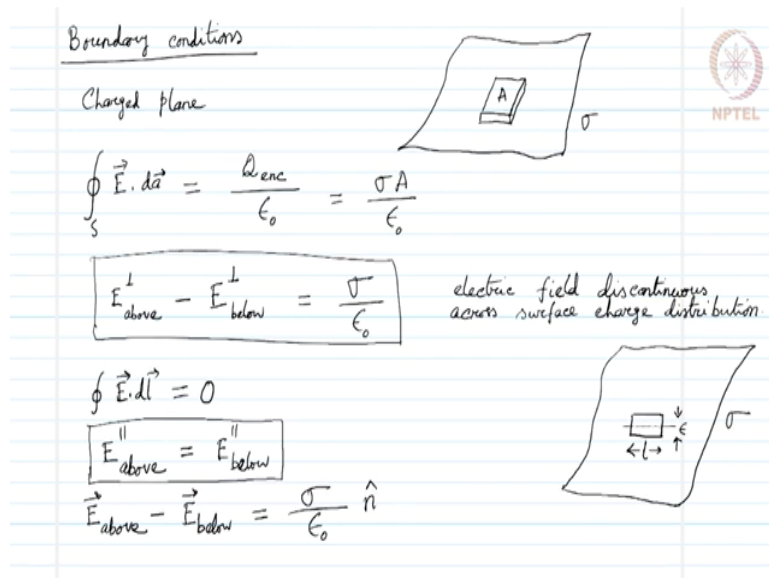 Boundary conditions
Charged plane
A
σ
NPTEL
∮_S E⃗. da⃗ = Q_enc/ϵ₀ = σA/ϵ₀
E^⊥_above − E^⊥_below = σ/ϵ₀
electric field discontinuous
across surface charge distribution.
∮ E⃗.dl⃗ = 0
σ
ϵ
←l→
E^||_above = E^||_below
E⃗_above − E⃗_below = σ/ϵ₀ n̂